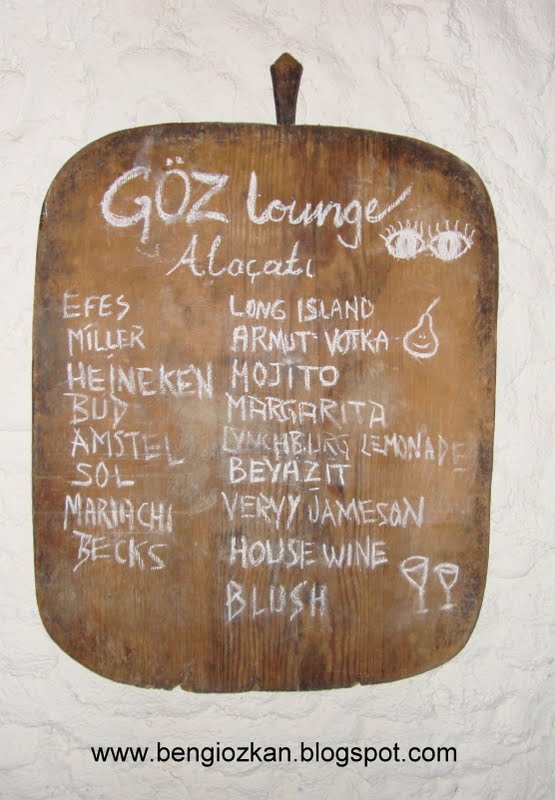 GÖZ lounge
Alaçatı
EFES
MİLLER
HEİNEKEN
BUD
AMSTEL
SOL
MARIACHI
BECKS
LONG ISLAND
ARMUT VOTKA
MOJITO
MARGARITA
LYNCHBURG LEMONADE
BEYAZIT
VERVY JAMESON
HOUSE WINE
BLUSH
www.bengiozkan.blogspot.com